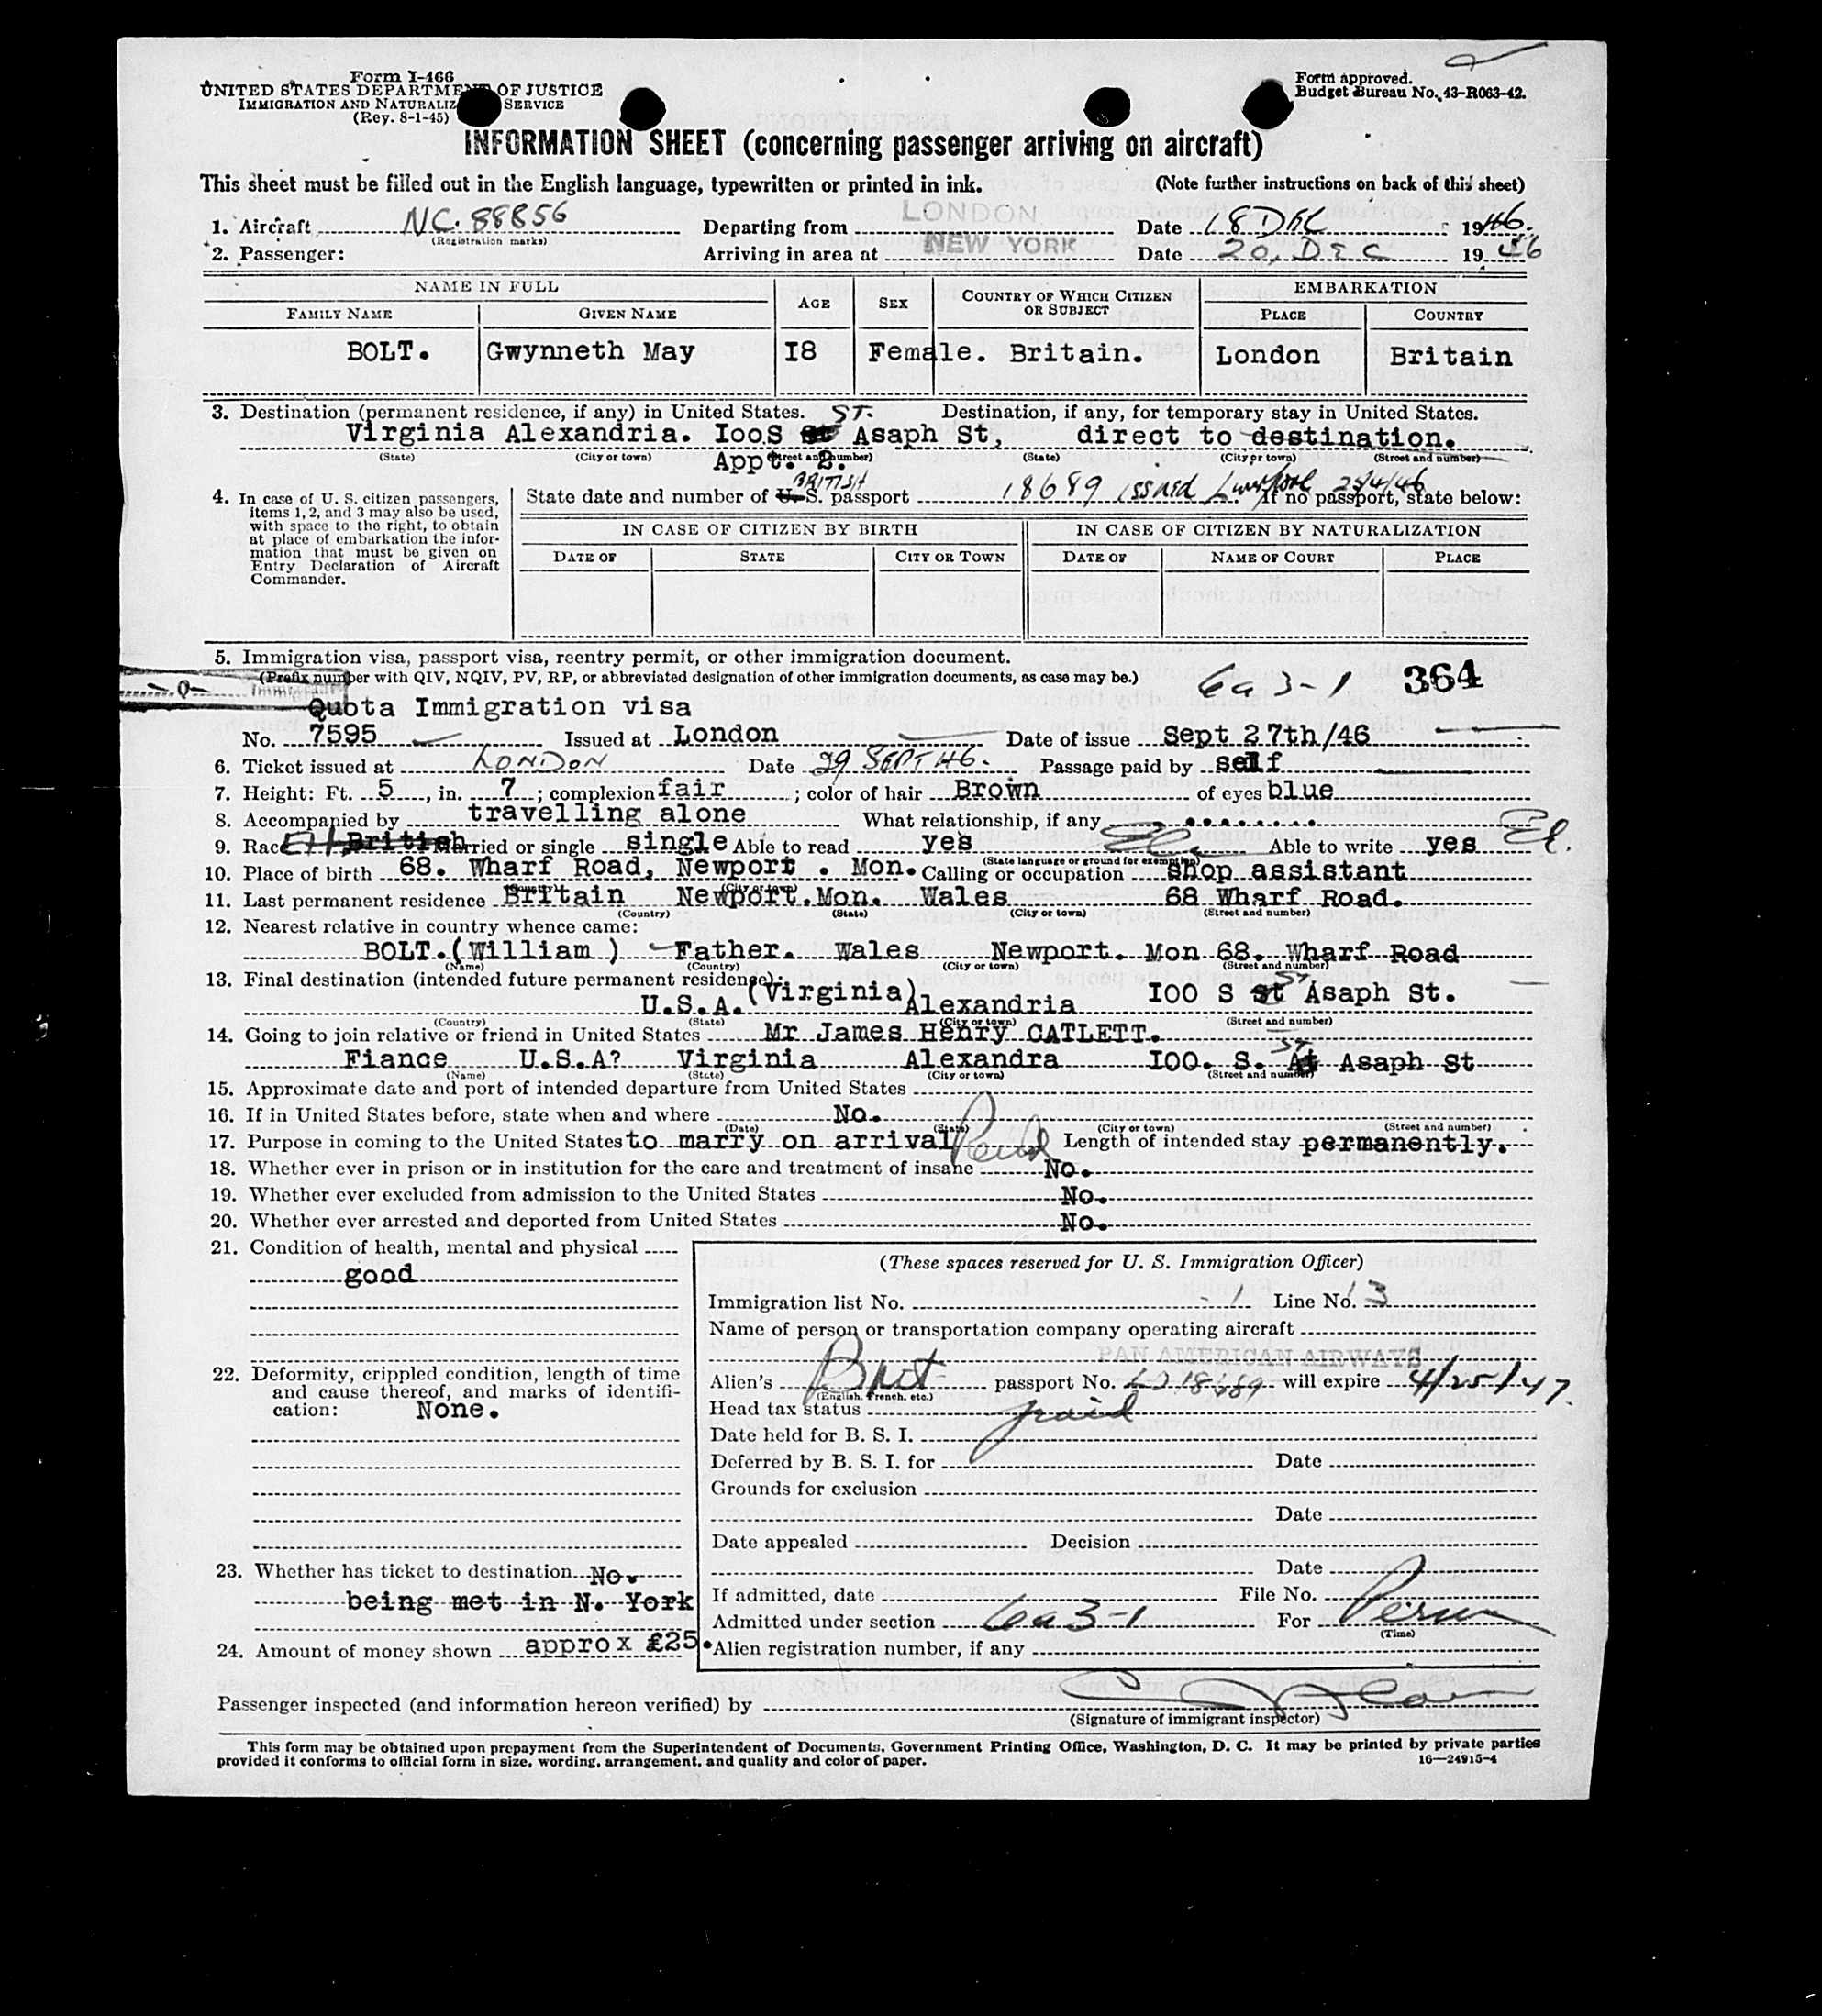 Form I-466
UNITED STATES DEPARTMENT OF JUSTICE
IMMIGRATION AND NATURALIZ SERVICE
(Rev. 8-1-45)
Form approved.
Budget Bureau No. 43-R063-42.
INFORMATION SHEET (concerning passenger arriving on aircraft)
This sheet must be filled out in the English language, typewritten or printed in ink. (Note further instructions on back of this sheet)
1. Aircraft NC. 88856 Departing from LONDON Date 18 DEC 1946.
(Registration marks)
2. Passenger: Arriving in area at NEW YORK Date 20, DEC 1946
NAME IN FULL AGE SEX COUNTRY OF WHICH CITIZEN OR SUBJECT EMBARKATION
FAMILY NAME GIVEN NAME PLACE COUNTRY
BOLT. Gwynneth May I8 Female. Britain. London Britain
3. Destination (permanent residence, if any) in United States. Destination, if any, for temporary stay in United States.
Virginia Alexandria. IooS ST. Asaph St, direct to destination.
(State) (City or town) (Street and number) (State) (City or town) (Street and number)
Appt. 2.
4. In case of U. S. citizen passengers, items 1, 2, and 3 may also be used, with space to the right, to obtain at place of embarkation the information that must be given on Entry Declaration of Aircraft Commander.
State date and number of U. S. BRITISH passport 18689 issued Liverpool 25/4/46 If no passport, state below:
IN CASE OF CITIZEN BY BIRTH IN CASE OF CITIZEN BY NATURALIZATION
DATE OF STATE CITY OR TOWN DATE OF NAME OF COURT PLACE
5. Immigration visa, passport visa, reentry permit, or other immigration document.
(Prefix number with QIV, NQIV, PV, RP, or abbreviated designation of other immigration documents, as case may be.) 6a 3-1 364
Quota Immigration visa
No. 7595 Issued at London Date of issue Sept 27th/46
6. Ticket issued at LONDON Date 29 SEPT 46. Passage paid by self
7. Height: Ft. 5, in. 7; complexion fair; color of hair Brown of eyes blue
8. Accompanied by travelling alone What relationship, if any
9. Race British Married or single single Able to read yes Able to write yes
(State language or ground for exemption)
10. Place of birth 68. Wharf Road, Newport . Mon. Calling or occupation shop assistant
(Country) (City or town)
11. Last permanent residence Britain Newport.Mon. Wales 68 Wharf Road.
(Country) (State) (City or town) (Street and number)
12. Nearest relative in country whence came:
BOLT.(William ) Father. Wales Newport. Mon 68. Wharf Road
(Name) (Country) (City or town) (Street and number)
13. Final destination (intended future permanent residence):
U.S.A. (Virginia) Alexandria I00 S ST Asaph St.
(Country) (State) (City or town) (Street and number)
14. Going to join relative or friend in United States Mr James Henry CATLETT.
Fiance U.S.A? Virginia Alexandra I00. S. ST Asaph St
(Name) (State) (City or town) (Street and number)
15. Approximate date and port of intended departure from United States
16. If in United States before, state when and where No.
(Date) (State) (City or town) (Street and number)
17. Purpose in coming to the United States to marry on arrival Length of intended stay permanently.
18. Whether ever in prison or in institution for the care and treatment of insane No.
19. Whether ever excluded from admission to the United States No.
20. Whether ever arrested and deported from United States No.
21. Condition of health, mental and physical
good
22. Deformity, crippled condition, length of time and cause thereof, and marks of identification: None.
23. Whether has ticket to destination No.
being met in N. York
24. Amount of money shown approx £25.
(These spaces reserved for U. S. Immigration Officer)
Immigration list No. 1 Line No. 3
Name of person or transportation company operating aircraft
PAN AMERICAN AIRWAYS
Alien's Brit passport No. 18689 will expire 4/25/47.
(English, French, etc.)
Head tax status paid
Date held for B. S. I.
Deferred by B. S. I. for Date
Grounds for exclusion
Date
Date appealed Decision
Date
If admitted, date File No.
Admitted under section 6a 3-1 For Perm
(Time)
Alien registration number, if any
Passenger inspected (and information hereon verified) by
(Signature of immigrant inspector)
This form may be obtained upon prepayment from the Superintendent of Documents, Government Printing Office, Washington, D. C. It may be printed by private parties
provided it conforms to official form in size, wording, arrangement, and quality and color of paper. 16—24915-4